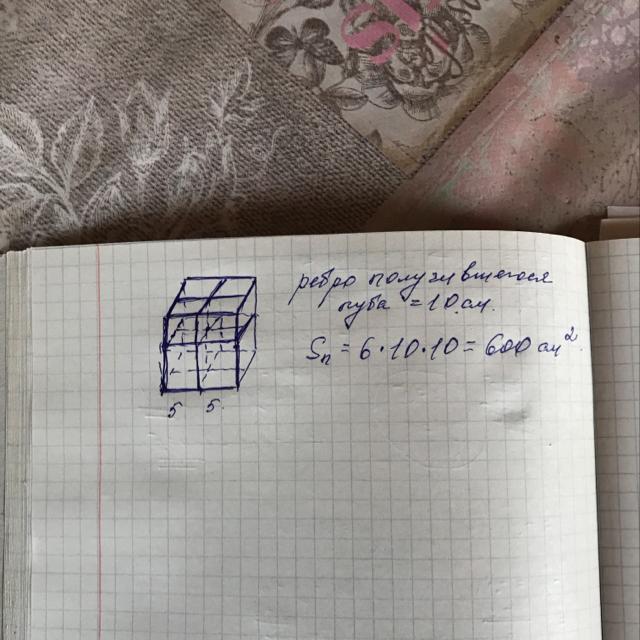 ребро получившегося
куба = 10 см.
Sп = 6·10·10 = 600 см².
5 5